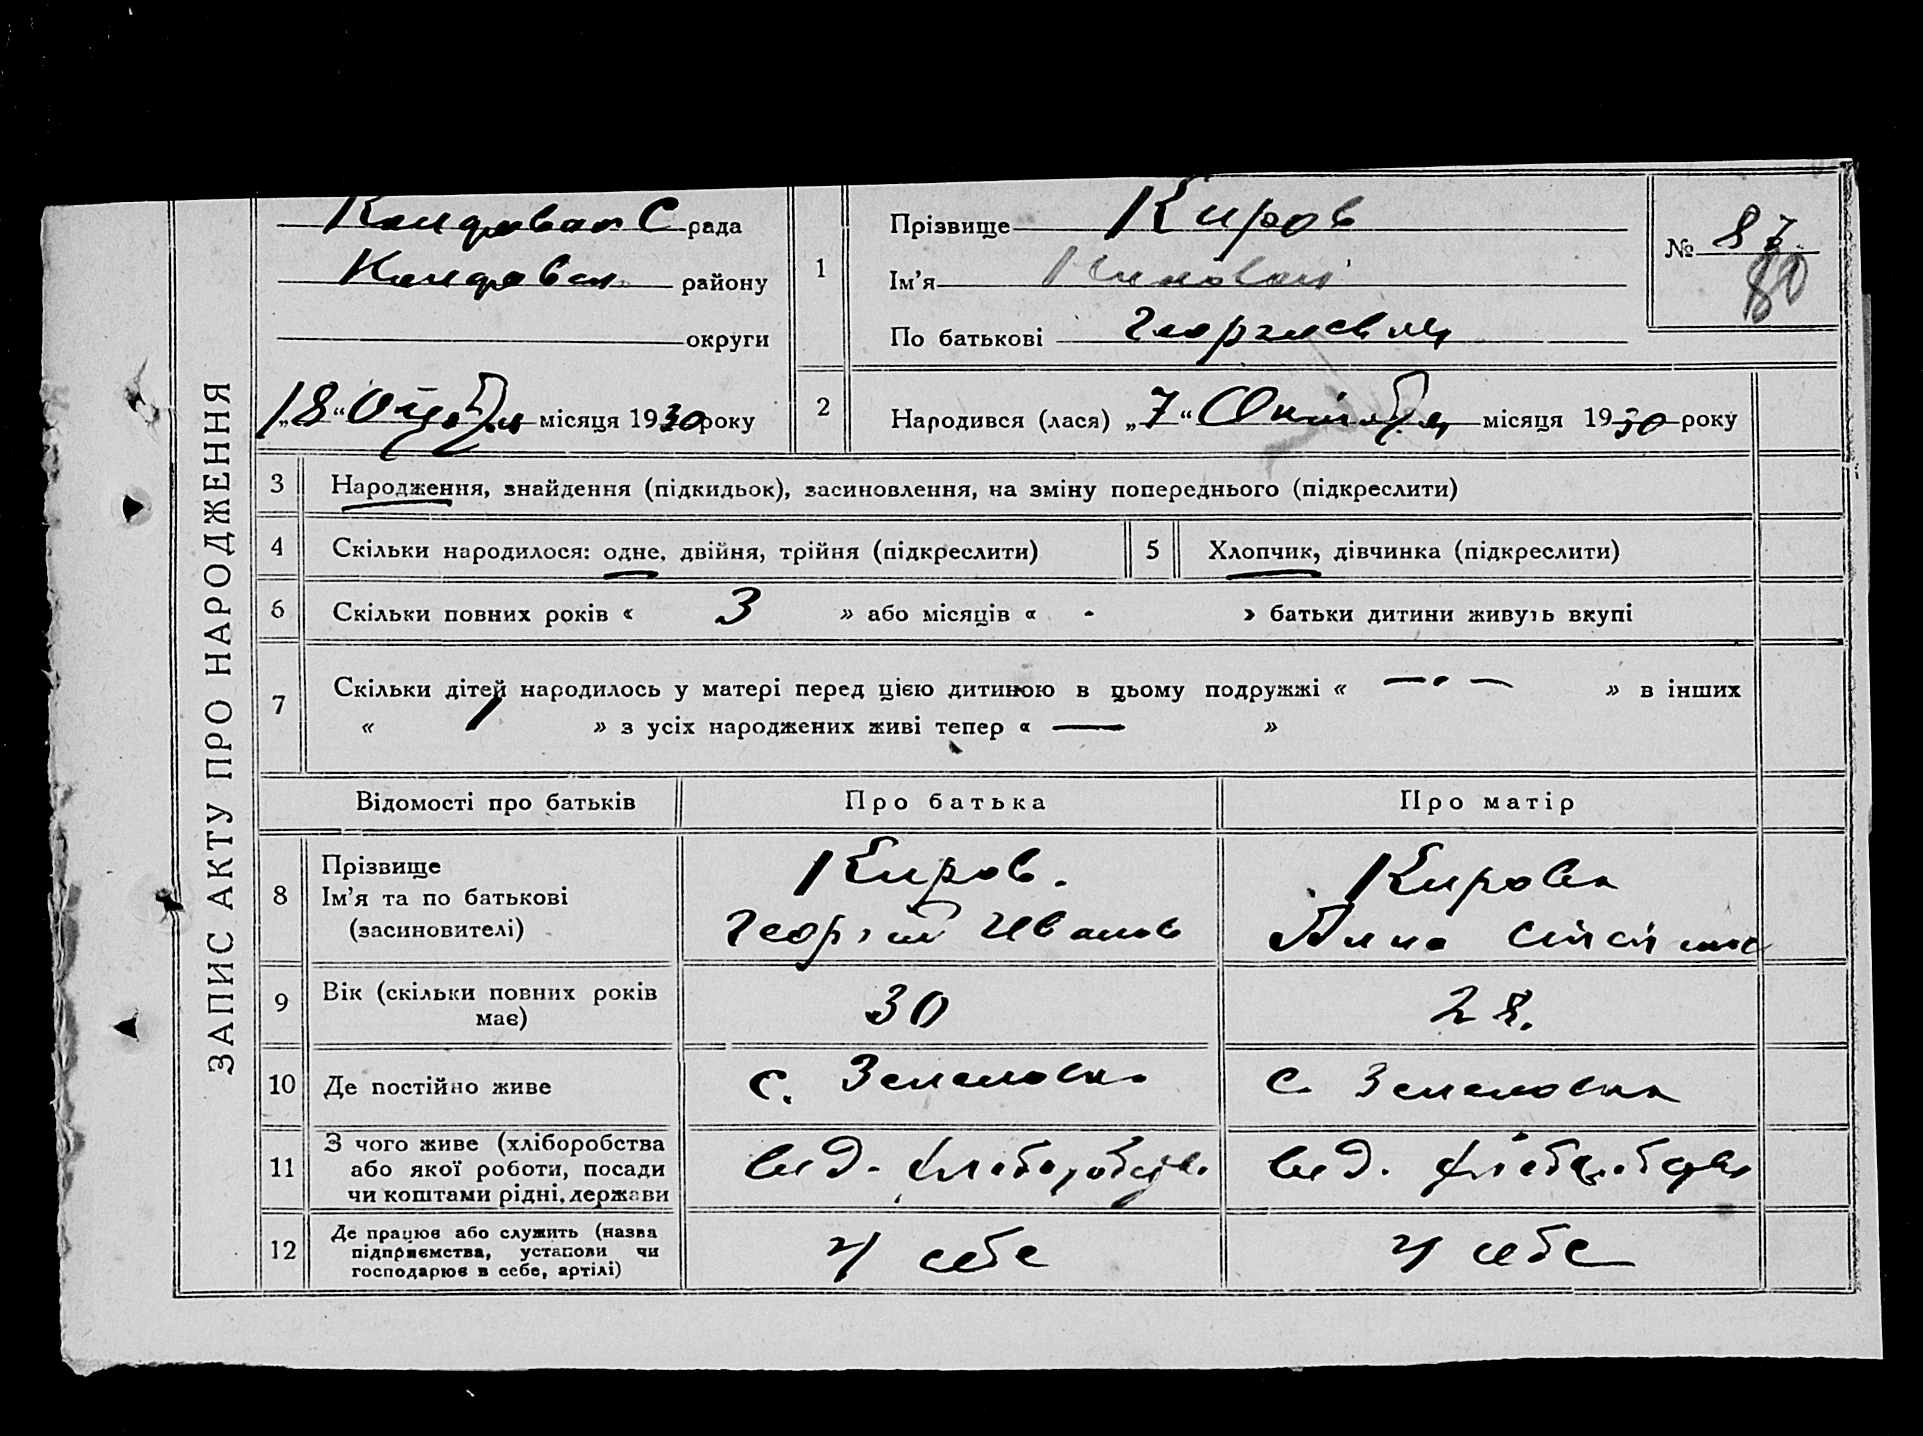 рада
району
округи
„18“ Октября місяця 1930 року
1
Прізвище Киров
Ім’я Николай
По батькові Георгиевич
№ 87
80
2
Народився (лася) „7“ Октября місяця 1930 року
ЗАПИС АКТУ ПРО НАРОДЖЕННЯ
3 Народження, знайдення (підкидьок), засиновлення, на зміну попереднього (підкреслити)
4 Скільки народилося: одне, двійня, трійня (підкреслити) 5 Хлопчик, дівчинка (підкреслити)
6 Скільки повних років « 3 » або місяців « - » батьки дитини живуть вкупі
7 Скільки дітей народилось у матері перед цією дитиною в цьому подружжі « — » в інших
« 1 » з усіх народжених живі тепер « — »
Відомості про батьків Про батька Про матір
8 Прізвище
Ім’я та по батькові
(засиновителі)
Киров.
Георгій Иванов
Кирова
Анна
9 Вік (скільки повних років
має)
30
28.
10 Де постійно живе
с.
с.
11 З чого живе (хліборобства
або якої роботи, посади
чи коштами рідні, держави
12 Де працює або служить (назва
підприємства, установи чи
господарює в себе, артілі)
у себе
у себе